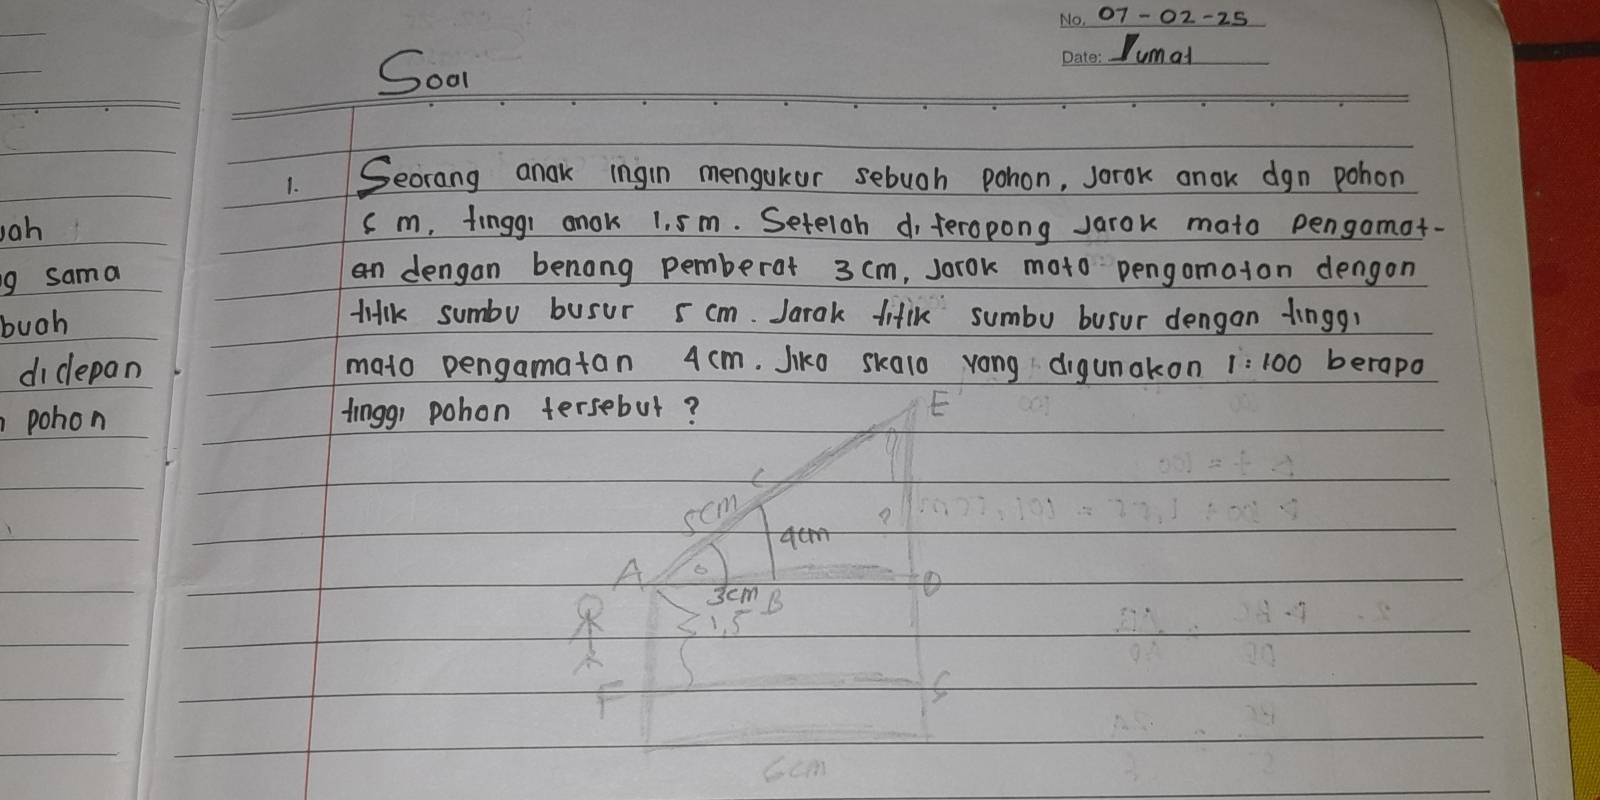 No. 07-02-25
Date: Jumat
Soal
1. Seorang anak ingin mengukur sebuah pohon, Jarak anak dgn pohon
6 m, tinggi anak 1,5 m. Setelah di teropong Jarak mata pengamat-
an dengan benang pemberat 3 cm, Jarak mata pengamatan dengan
titik sumbu busur 5 cm. Jarak titik sumbu busur dengan tinggi
mata pengamatan 4 cm. Jika skala yang digunakan 1:100 berapa
tinggi pohon tersebut ?
E
C
5cm
?
4cm
A
D
3cm B
1,5
F
6cm
uah
g sama
buah
didepan
pohon